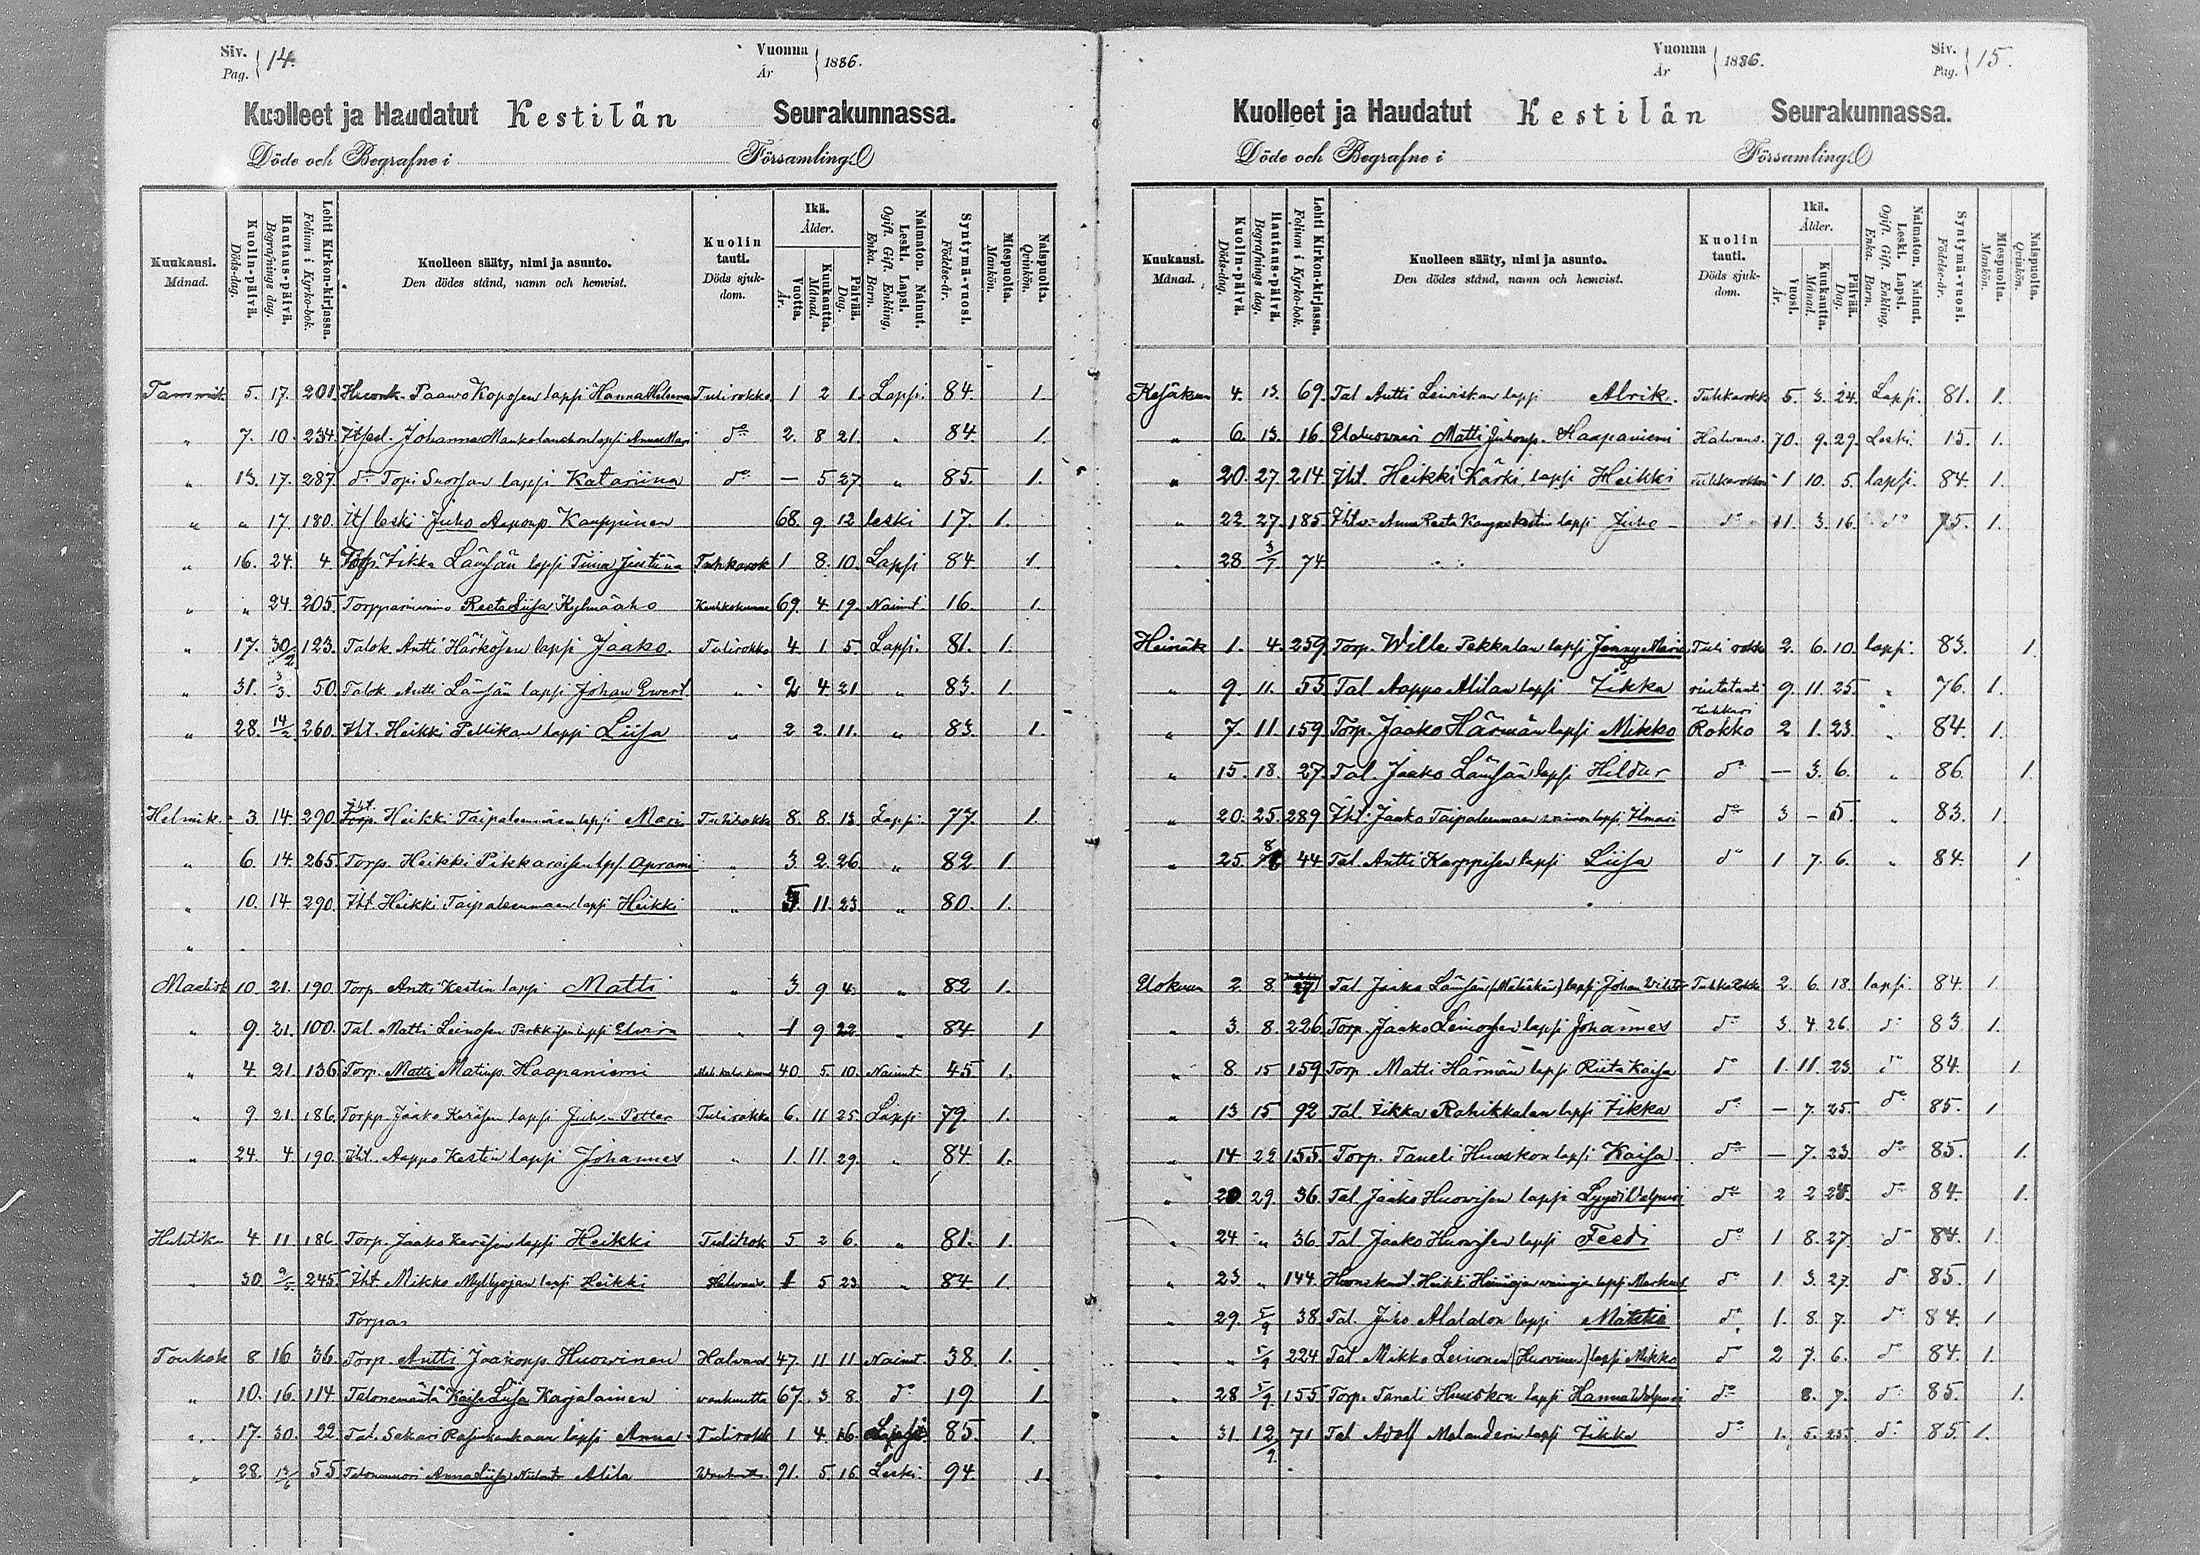 Siv. Pag. 14.
Vuonna År 1886.
Kuolleet ja Haudatut Kestilän Seurakunnassa.
Döde och Begrafne i Församling.
Kuukausi. Månad.
Kuolin-päivä. Döds-dag.
Hautaus-päivä. Begrafnings dag.
Lehti Kirkon-kirjassa. Folium i Kyrko-bok.
Kuolleen sääty, nimi ja asunto. Den dödes stånd, namn och hemvist.
Kuolin tauti. Döds sjukdom.
Ikä. Ålder.
Vuotta. År.
Kuukautta. Månad.
Päivää. Dag.
Naimaton. Nainut. Leski. Lapsi. Ogift. Gift. Enkling, Enka. Barn.
Syntymä-vuosi. Födelse-år.
Miespuolta. Mankön.
Naispuolta. Qvinkön.
Tammik 5. 17. 201 Paawo Koposen lapsi Hanna Helena Tulirokko 1 2 1. Lapsi. 84. 1.
" 7. 10. 234 Johanna lapsi do 2. 8 21. " 84. 1.
" 13. 17. 287. do Topi Suorsan lapsi Katariina do — 5 27 " 85. 1.
" " 17. 180. Itf leski Juho Aaponp. Karppinen 68. 9 12 leski 17. 1.
" 16. 24. 4. Torp. Iikka Lämsän lapsi Tiina Tuhkarok 1 8. 10. Lapsi 84. 1.
" " 24. 205. Reeta Liisa Kylmäaho 69. 4. 19. Nainut. 16. 1.
" 17. 30/2 123. Talok. Antti Härkösen lapsi Jaako. Tulirokko 4. 1. 5. Lapsi. 81. 1.
" 31. 3/3 50. Talok. Antti Lämsän lapsi Johan Ewert. " 2 4 21 " 83. 1.
" 28. 14/2 260. Iht. Heikki Pellikan lapsi Liisa " 2 2. 11. " 83. 1.
Helmik. 3. 14. 290. Iht. Heikki lapsi Mari Tulirokko 8. 8. 13 Lapsi. 77. 1.
" 6. 14. 265. Torp. Heikki Pikkaraisen lps Aprami " 3 2. 26 " 82. 1.
" 10. 14. 290. Iht. Heikki Taipaleenmaan lapsi Heikki " 5 11. 23. " 80. 1.
"
Maalisk 10. 21. 190. Torp. Antti Kestin lapsi Matti " 3. 9 4. " 82 1.
" 9. 21. 100. Tal. Matti Leinosen lapsi Elvira " 1 9 22 " 84. 1
" 4. 21. 136. Torp. Matti Matinp. Haapaniemi 40 5. 10. Nainut. 45 1.
" 9. 21. 186. Torpp. Jaako Keräsen lapsi Juho Petter Tulirokko 6. 11 25. Lapsi 79. 1.
" 24. 4. 190. Iht. Aappo Kestin lapsi Johannes " 1. 11. 29. " 84. 1.
Huhtik 4. 11 186 Torp. Jaako Keräsen lapsi Heikki Tulirok 5 2 6. " 81. 1.
" 30. 9/5 245. Iht. Mikko Myllyojan lapsi Heikki Halvaus 1 5 23 " 84 1.
Torpas
Toukok 8 16 36. Torp. Antti Jaakonp. Huowinen Halvaus 47. 11 11 Nainut. 38. 1.
" 10. 16. 114 Kaisa Liisa Karjalainen vanhuutta 67. 3 8. do 19 1.
" 17. 30. 22. Tal. Sakari lapsi Anna Tulirokk 1 4. 16. Lapsi. 85. 1.
" 28. 13/6 55 Anna Liisa Alila Vanhuutt. 91. 5. 16. Leski. 94. 1.
Siv. Pag. 15.
Vuonna År 1886.
Kuolleet ja Haudatut Kestilän Seurakunnassa.
Döde och Begrafne i Församling.
Kuukausi. Månad.
Kuolin-päivä. Döds-dag.
Hautaus-päivä. Begrafnings dag.
Lehti Kirkon-kirjassa. Folium i Kyrko-bok.
Kuolleen sääty, nimi ja asunto. Den dödes stånd, namn och hemvist.
Kuolin tauti. Döds sjukdom.
Ikä. Ålder.
Vuosi. År.
Kuukautta. Månad.
Päivää. Dag.
Naimaton. Nainut. Leski. Lapsi. Ogift. Gift. Enkling, Enka. Barn.
Syntymä-vuosi. Födelse-år.
Miespuolta. Mankön.
Naispuolta. Qvinkön.
Kesäkuu 4. 13. 69. Tal Antti Leiviskan lapsi Alrik. Tuhkarokk 5. 3. 24. Lapsi. 81. 1.
" 6. 13. 16. Matti Juhonp. Haapaniemi Halvaus. 70. 9. 29. Leski. 15. 1.
" 20. 27. 214. Iht. Heikki Kärki, lapsi Heikki Tuhkarokko 1 10. 5. lapsi. 84. 1.
" 22. 27. 185. Anna Reeta lapsi Juho — do 11. 3. 16. do 75. 1.
" 28 3/7 74
Heinäk 1. 4. 259. Torp. Wille Pekkalan lapsi Jenny Maria Tuli rokko 2. 6. 10. lapsi. 83. 1.
" 9. 11. 55 Tal. Aappo Alilan lapsi Iikka rintatauti 9. 11. 25. " 76. 1.
" 7. 11. 159. Torp. Jaako Härmän lapsi Mikko Tuhkari Rokko 2 1. 23. " 84. 1.
" 15. 18. 27. Tal. Jaako Lämsän lapsi Hildur do — 3. 6. " 86. 1.
" 20. 25. 289 Iht. Jaako Taipaleenmaan lapsi Ilmari do 3 — 5. " 83. 1.
" 25. 44. Tal. Antti Karppisen lapsi Liisa do 1 7. 6. " 84. 1
Elokuu 2. 8. 27 Tal. Jaako Lämsän lapsi Johan Tuhka Rokko 2. 6. 18. lapsi. 84. 1.
" 3. 8. 226. Torp. Jaako Leinosen lapsi Johannes do 3. 4. 26. do 83. 1.
" 8. 15 159 Torp. Matti Härmän lapsi Riita Kaisa do 1. 11. 23. do 84. 1.
" 13 15 92 Tal. Iikka Rahikkalan lapsi Iikka do — 7. 25. do 85. 1
" 14. 22 155. Torp. Taneli Huuskon lapsi Kaisa do — 7. 23. do 85. 1.
" 20 29. 36. Tal. Jaako Huovisen lapsi do 2 2 do 84. 1.
" 24. " 36. Tal. Jaako Huovisen lapsi Feedi do 1 8. 27. do 84. 1.
" 23. " 144. Heikki lapsi Markus do 1 3. 27. do 85. 1
" 29. 5/9 38. Tal. Juho Alatalon lapsi do 1. 8. 7. do 84. 1
" " 5/9 224 Tal. Mikko Leinonen (Huovinen) lapsi Mikko do 2 7. 6. do 84. 1.
" 28. 5/9 155 Torp. Taneli Huuskon lapsi Hanna Walpuri do 8. 7. do 85. 1.
" 31. 12/9 71 Tal Adolf Melanderin lapsi Iikka do 1. 5. 25. do 85 1.